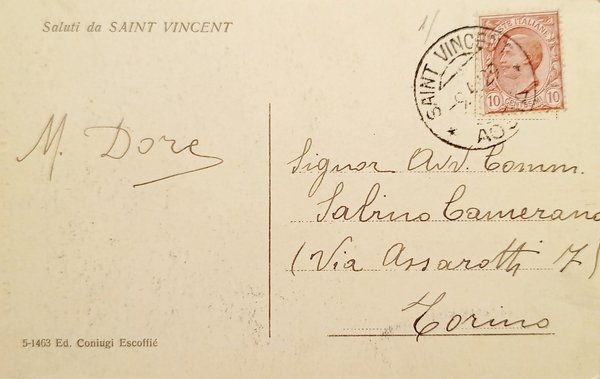 Saluti da SAINT VINCENT
SAINT VINCENT
AOSTA
POSTE ITALIANE
10 CENTESIMI 10
M. Dore
Signor Avv. Comm.
Sabino Camerano
(Via Assarotti 7)
Torino
5-1463 Ed. Coniugi Escoffié